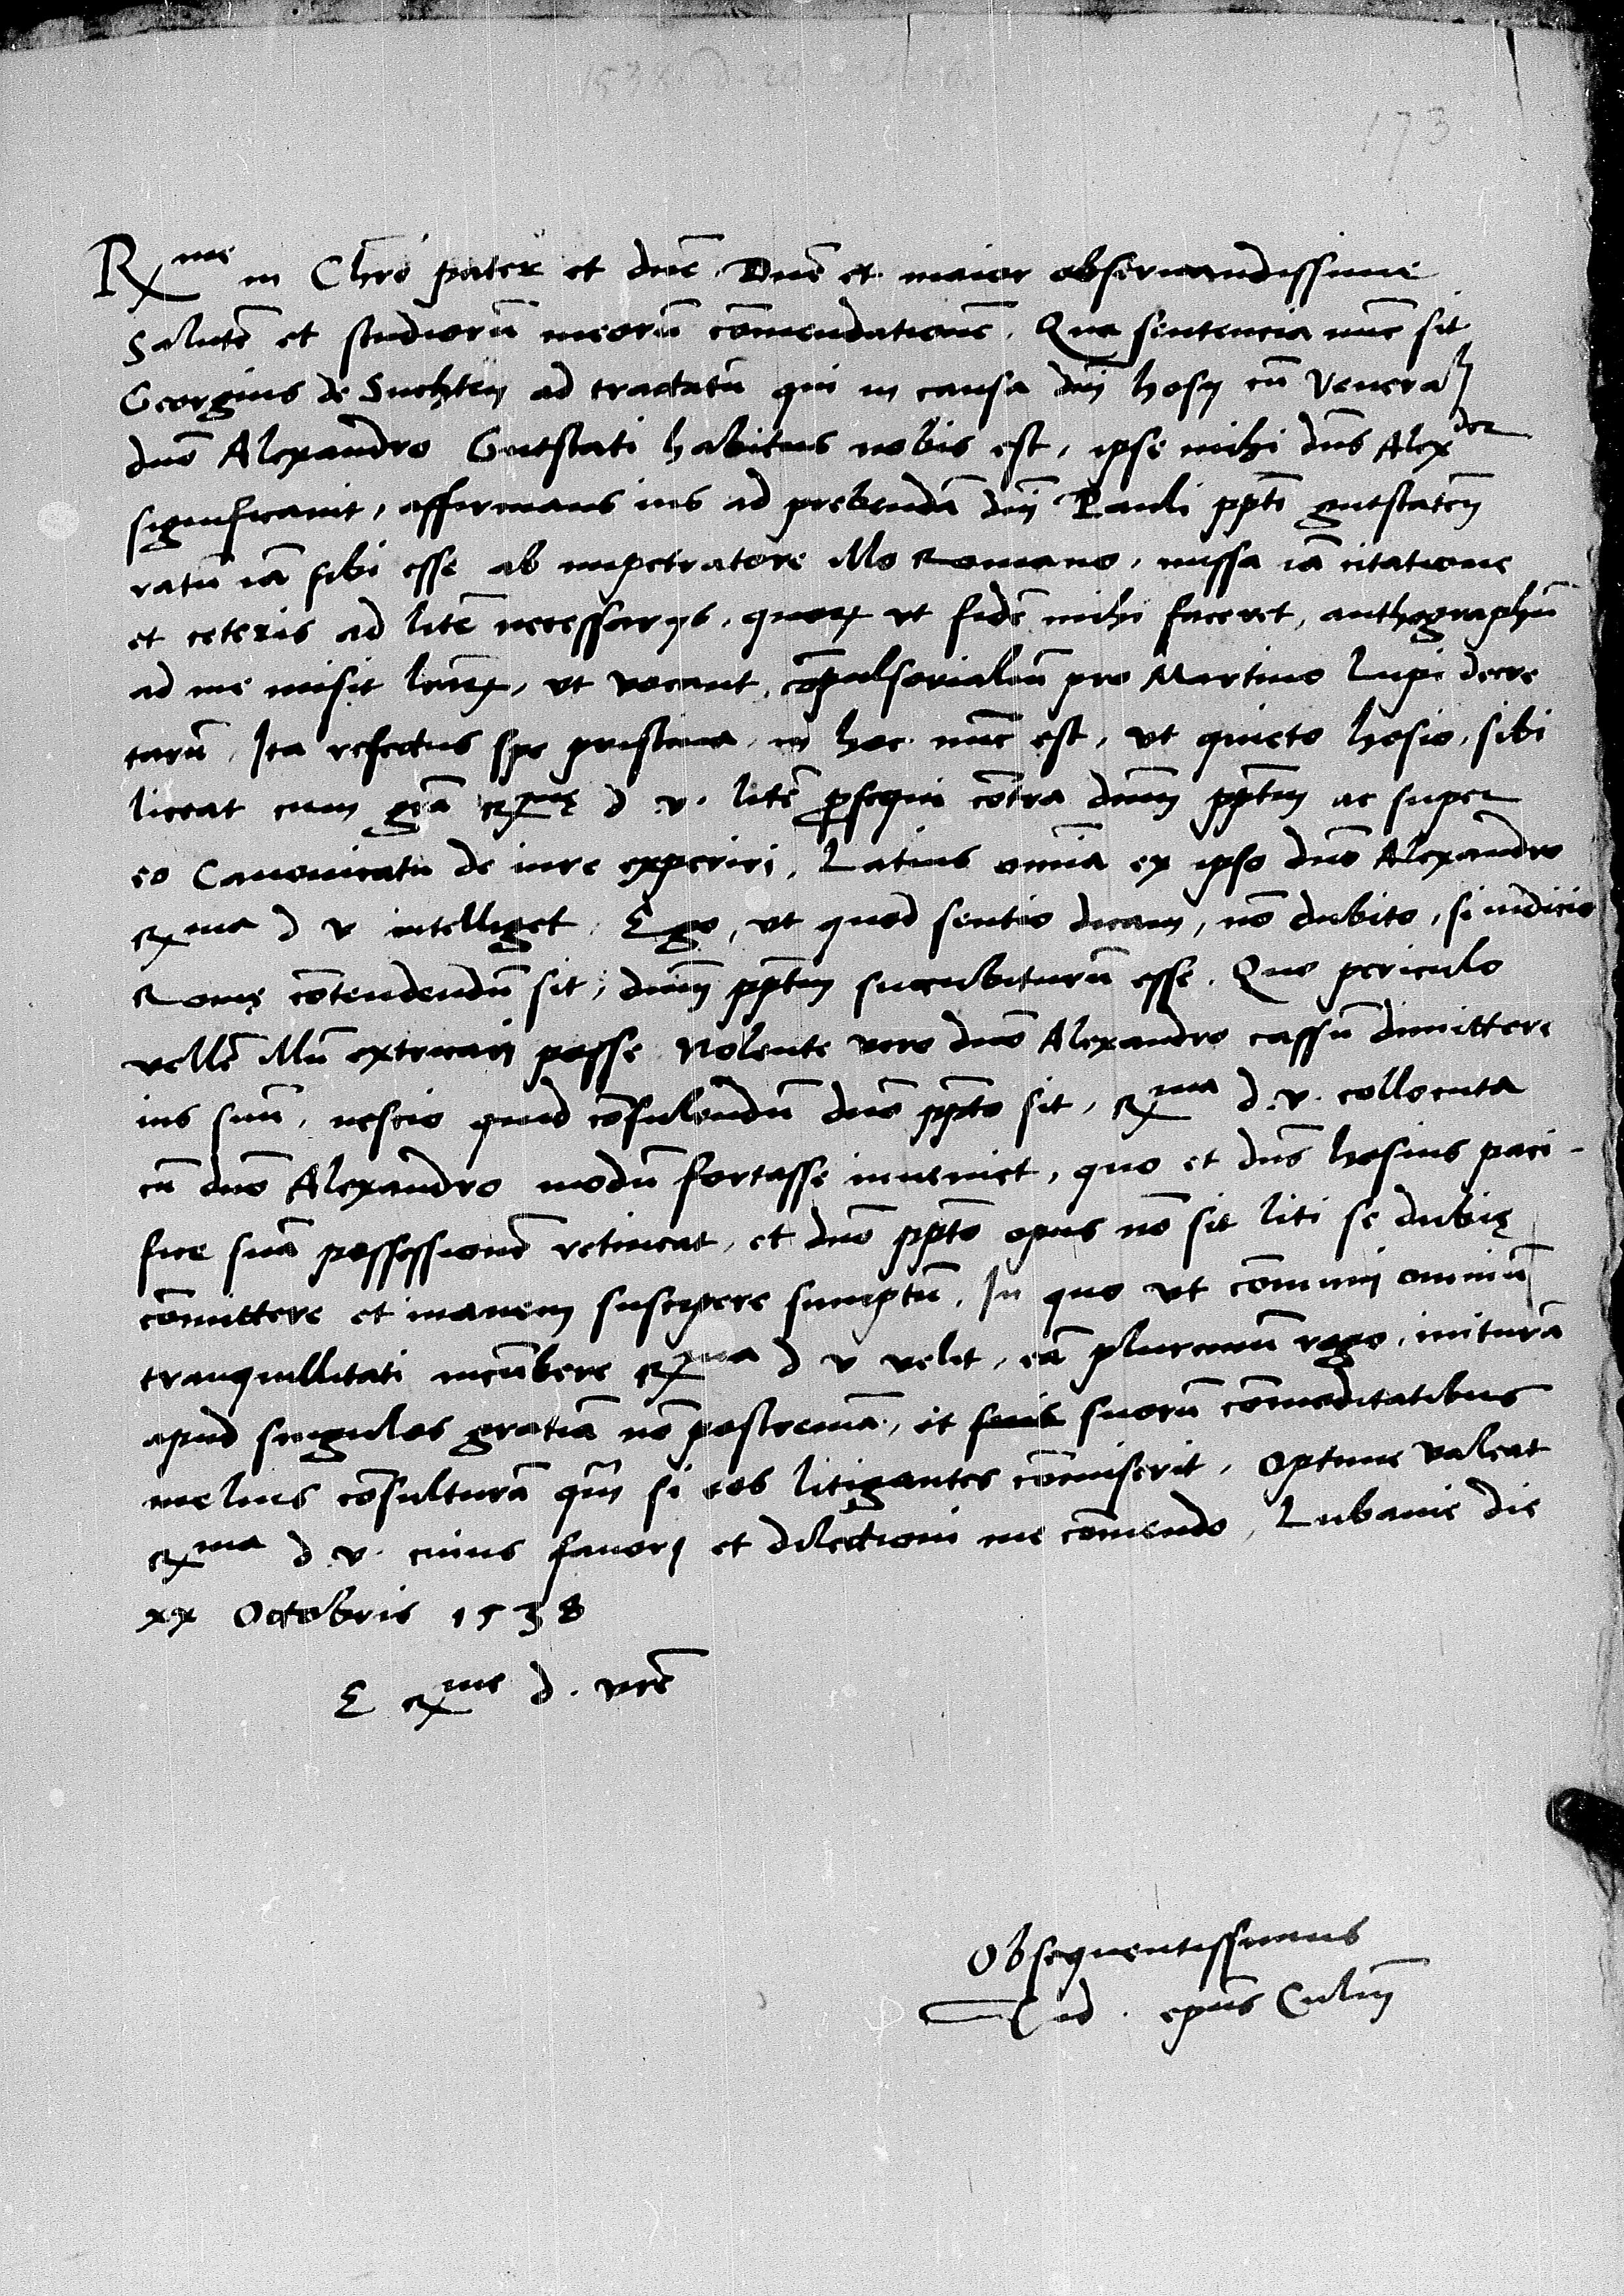 1538 d. 20
173
Rxme in Chro pater et dne. Dne et maior observandissime
Salute et studioru meoru comendatione. Qua sentencia nunc sit
Georgius de Suchten ad tractatu qui in causa dni hosij cu Venera
dno Alexandro Gutstati habitus nobis est, ipse mihi dns Alexder
significavit, affirmans ius ad prebenda dni Pauli ppti gutstaten
ratu ia sibi esse ab impetratore illo Romano, missa ia citatione
et ceteris ad lite necessarijs, quoru ut fide mihi faceret, anthographu
ad me misit lraru, ut vocant, compulsorialiu pro Martino Lupi decre
taru. Ita refectus spe pristina in hoc nunc est, ut quieto hosio, sibi
liceat cum gra Rxme d. v. lite prosequi contra dnum pptm ac super
eo Canonicatu de iure experiri. Latius omnia ex ipso dno Alexandro
Rxma d v intelliget. Ego, ut quod sentio dicam, no dubito, si iudicio
Rome contendendu sit, dnum pptm succubituru esse. Quo periculo
velle illu extricari posse. Nolente vero dno Alexandro cassu dimittere
ius suu, nescio quid consulendu dno ppto sit, Rxma d. v. collocuta
cu dno Alexandro modu fortasse inveniet, quo et dns hosius paci-
fice sua possessione retineat, et dno ppto opus no sit liti se dubie
comittere et inanem suscipere sumptu. In quo ut comuni omniu
tranquillitati incumbere Rxma d v velit, ea plurimu rogo, initura
apud singulos gratia no postrema, et suis suoru comoditatibus
melius consultura qm si eos litigantes comiserit. Optime valeat
Rxma d. v. cuius favori et dilectioni me comendo. Lubavie die
xx Octobris 1538
E Rxme d. vre
Obsequentissimus
Tid. epus Culm